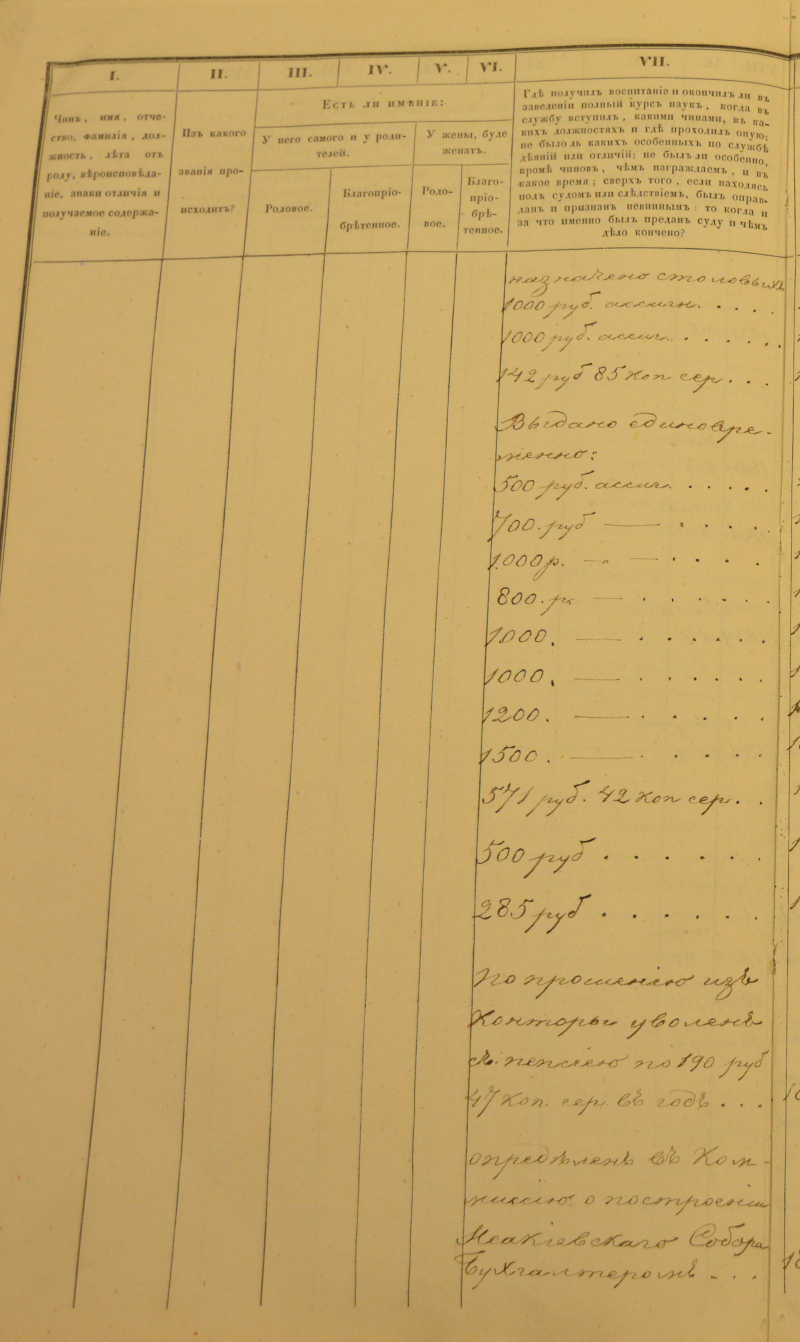 I. II. III. IV. V. VI. VII.
Чинъ, имя, отче-
ство, фамилія, дол-
жность, лѣта отъ
роду, вѣроисповѣда-
ніе, знаки отличія и
получаемое содержа-
ніе.
Изъ какого
званія про-
исходитъ?
Есть ли имѣніе:
У него самого и у роди-
телей.
У жены, буде
женатъ.
Родовое.
Благопріо-
брѣтенное.
Родо-
вое.
Благо-
пріо-
брѣ-
тенное.
Гдѣ получилъ воспитаніе и окончилъ ли въ
заведеніи полный курсъ наукъ, когда въ
службу вступилъ, какими чинами, въ ка-
кихъ должностяхъ и гдѣ проходилъ оную;
не было ль какихъ особенныхъ по службѣ
дѣяній или отличій; не былъ ли особенно,
кромѣ чиновъ, чѣмъ награждаемъ, и въ
какое время; сверхъ того, если находясь
подъ судомъ или слѣдствіемъ, былъ оправ-
данъ и признанъ невиннымъ: то когда и
за что именно былъ преданъ суду и чѣмъ
дѣло кончено?
1000 руб. ассигн. . . .
1000 руб. ассигн. . . . . .
142 руб 85 коп. сер. . . .
Выдано единовре-
менно:
500 руб. ассигн. . . . . .
700. руб — . . . . .
1000 р. — — . . . .
800. ру — . . . . . .
1000. — . . . . . .
1000, — . . . . . .
1200. — . . . . .
1500. — . . . . .
571 руб. 42 коп сер. . .
500 руб . . . . . .
285 руб . . . . . .
По прошенію изъ
Конторы уволенъ
съ пенсіею по 190 руб
47 коп. сер. въ годъ . . .
опредѣленъ въ Ком-
миссію о построеніи
Исаакіевскаго Собора
Бухгалтеромъ . . .